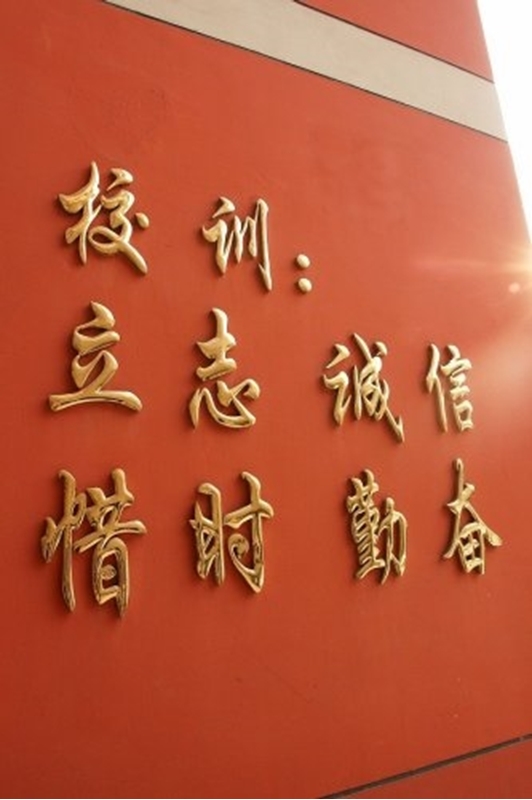 校训:
立志 诚信
惜时 勤奋